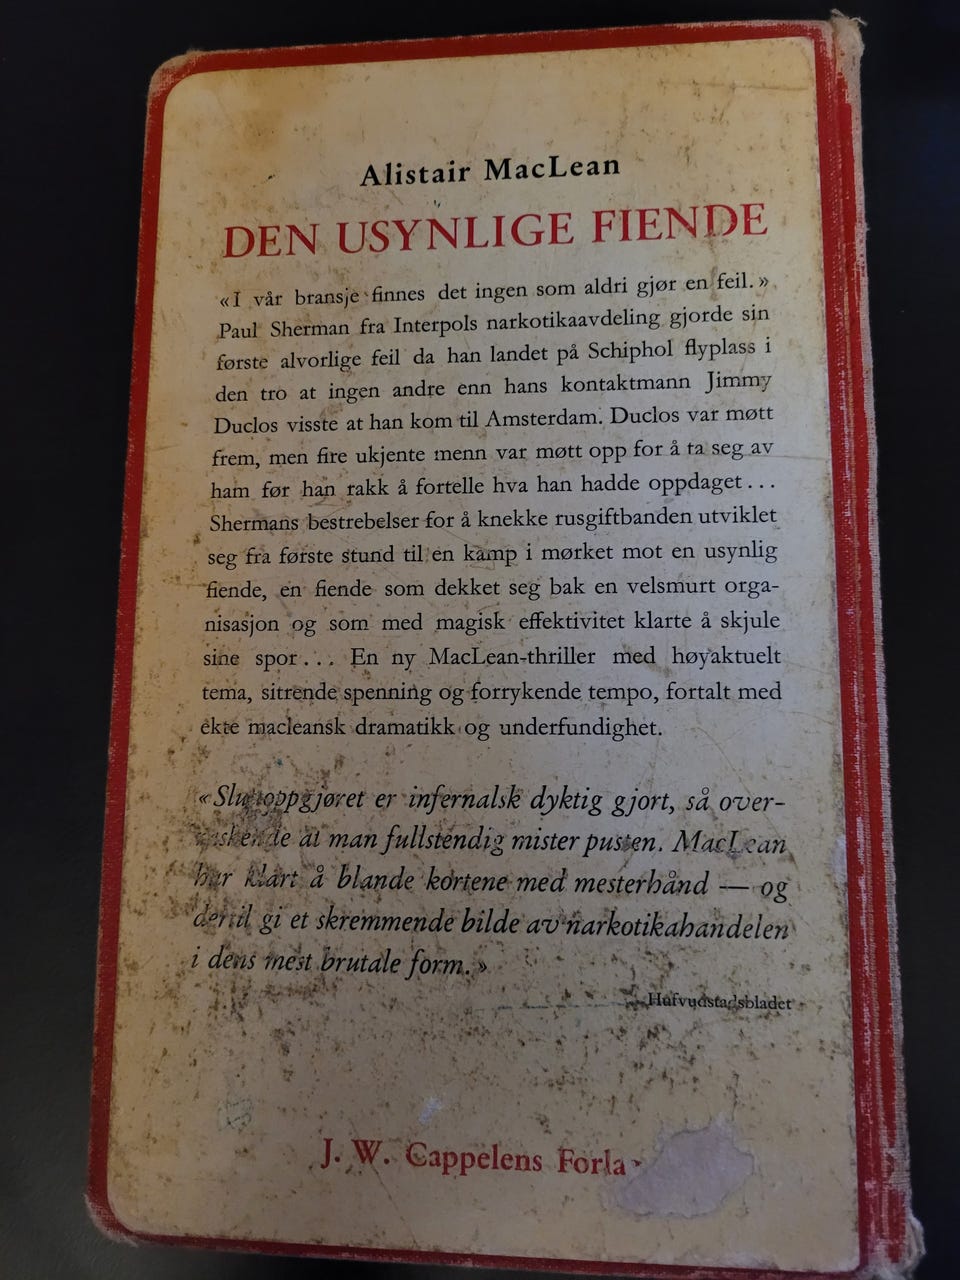 Alistair MacLean
DEN USYNLIGE FIENDE
«I vår bransje finnes det ingen som aldri gjør en feil.»
Paul Sherman fra Interpols narkotikaavdeling gjorde sin
første alvorlige feil da han landet på Schiphol flyplass i
den tro at ingen andre enn hans kontaktmann Jimmy
Duclos visste at han kom til Amsterdam. Duclos var møtt
frem, men fire ukjente menn var møtt opp for å ta seg av
ham før han rakk å fortelle hva han hadde oppdaget...
Shermans bestrebelser for å knekke rusgiftbanden utviklet
seg fra første stund til en kamp i mørket mot en usynlig
fiende, en fiende som dekket seg bak en velsmurt orga-
nisasjon og som med magisk effektivitet klarte å skjule
sine spor... En ny MacLean-thriller med høyaktuelt
tema, sitrende spenning og forrykende tempo, fortalt med
ekte macleansk dramatikk og underfundighet.
«Sluttoppgjøret er infernalsk dyktig gjort, så over-
raskende at man fullstendig mister pusten. MacLean
har klart å blande kortene med mesterhånd — og
dertil gi et skremmende bilde av narkotikahandelen
i dens mest brutale form.»
Hufvudstadsbladet
J. W. Cappelens Forla